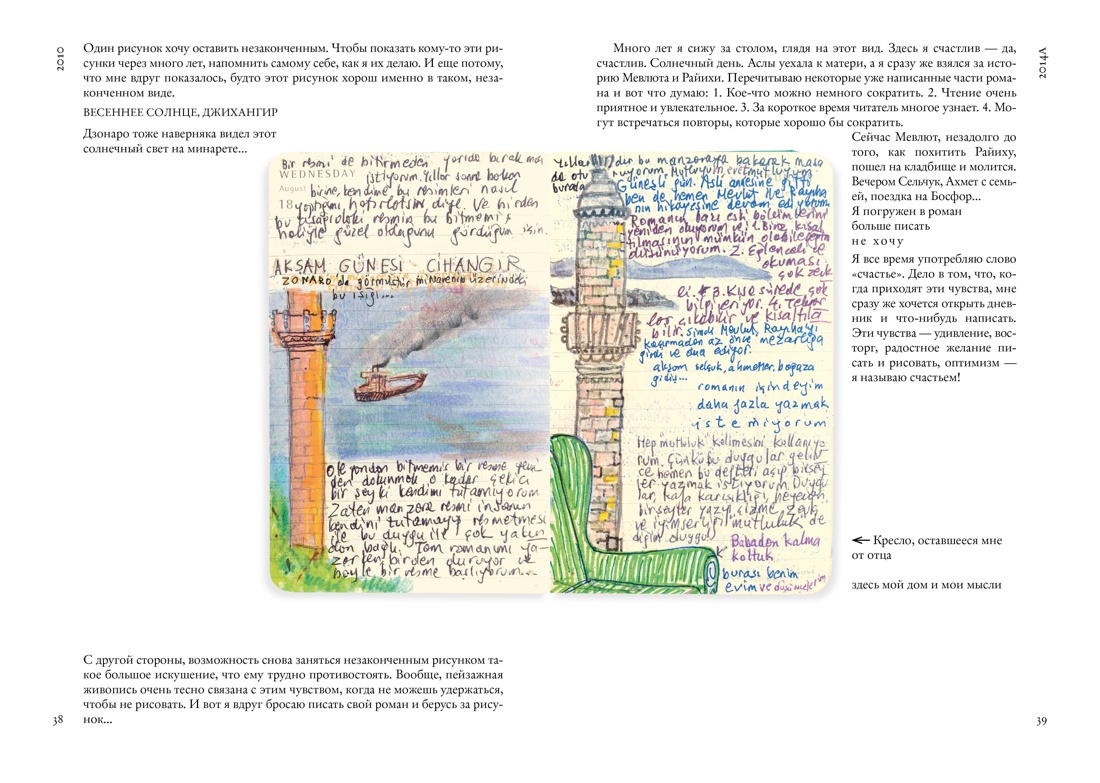 2010
Один рисунок хочу оставить незаконченным. Чтобы показать кому-то эти ри-
сунки через много лет, напомнить самому себе, как я их делаю. И еще потому,
что мне вдруг показалось, будто этот рисунок хорош именно в таком, неза-
конченном виде.
ВЕСЕННЕЕ СОЛНЦЕ, ДЖИХАНГИР
Дзонаро тоже наверняка видел этот
солнечный свет на минарете...
Bir resmi de bitirmeden yarıda bırakmak
WEDNESDAY istiyorum. Yıllar sonra bakan
August birine, kendime bu resimleri nasıl
18 yaptığımı hatırlatsın diye. Ve birden
bu
haliyle güzel olduğunu gördüğüm için.
AKŞAM GÜNEŞİ - CİHANGİR
ZONARO da görmüştür minarenin üzerindeki
bu ışığı...
Öte yandan bitmemiş bir resme yeni-
den dokunmak o kadar çekici
bir şey ki kendimi tutamıyorum
Zaten manzara resmi insanın
kendini tutamayıp resmetmesi
ile bu duygu ile çok yakın-
dan bağlı. Tam romanımı ya-
zarken birden duruyor ve
böyle bir resme başlıyorum...
С другой стороны, возможность снова заняться незаконченным рисунком та-
кое большое искушение, что ему трудно противостоять. Вообще, пейзажная
живопись очень тесно связана с этим чувством, когда не можешь удержаться,
чтобы не рисовать. И вот я вдруг бросаю писать свой роман и берусь за рису-
нок...
38
2014А
Много лет я сижу за столом, глядя на этот вид. Здесь я счастлив — да,
счастлив. Солнечный день. Аслы уехала к матери, а я сразу же взялся за исто-
рию Мевлюта и Райихи. Перечитываю некоторые уже написанные части рома-
на и вот что думаю: 1. Кое-что можно немного сократить. 2. Чтение очень
приятное и увлекательное. 3. За короткое время читатель многое узнает. 4. Мо-
гут встречаться повторы, которые хорошо бы сократить.
Сейчас Мевлют, незадолго до
того, как похитить Райиху,
пошел на кладбище и молится.
Вечером Сельчук, Ахмет с семь-
ей, поездка на Босфор...
Я погружен в роман
больше писать
не хочу
Я все время употребляю слово
«счастье». Дело в том, что, ко-
гда приходят эти чувства, мне
сразу же хочется открыть днев-
ник и что-нибудь написать.
Эти чувства — удивление, вос-
торг, радостное желание пи-
сать и рисовать, оптимизм —
я называю счастьем!
bu manzaraya bakarak masa
da
burada
Güneşli gün. Aslı annesine gitti
ben de hemen Mevlut ile Rayiha
nın hikayesine devam ediyorum.
Romanın bazı eski bölümlerini
yeniden okuyorum ve 1. Biraz kısal
tılmasının mümkün olabileceğini
düşünüyorum. 2. Eğlenceli ve
okuması
çok zevk
li. 3. Kısa sürede çok
bilgi veriyor. 4. Tekrar
lar çıkabilir ve kısaltıla
bilir. Şimdi Mevlut, Rayihayı
kaçırmadan az önce mezarlığa
girdi ve dua ediyor.
akşam selçuk, ahmetler, boğaza
gidiş...
romanın içindeyim
daha fazla yazmak
istemiyorum
Hep mutluluk kelimesini kullanıyo
rum. Çünkü bu duygular gelin
ce hemen bu defteri açıp birşey
ler yazmak istiyorum. Duygu
lar, kafa karışıklığı, heyecan,
birşeyler yazıp çizme zevki
ve iyimserliği mutluluk de
diğim duygu!
Babadan kalma
koltuk
burası benim
evim ve düşüncelerim
Кресло, оставшееся мне
от отца
здесь мой дом и мои мысли
39